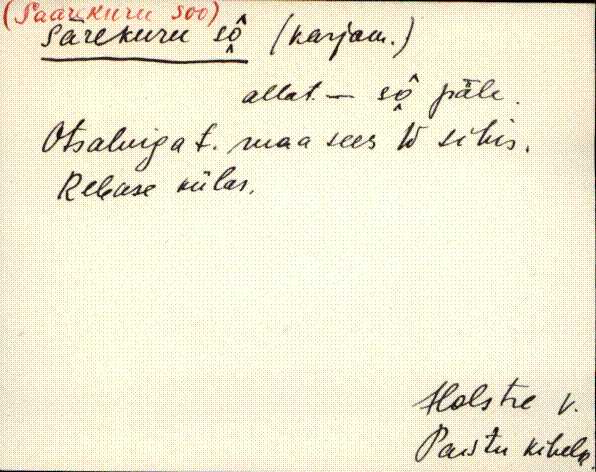 (Saarekuru soo)
Särekuru sô̭ (karjam.)
allat. — sô̭ päle.
Otsaluiga t. maa sees W sihis.
Rebase külas.
Holstre v.
Paistu kihelk.